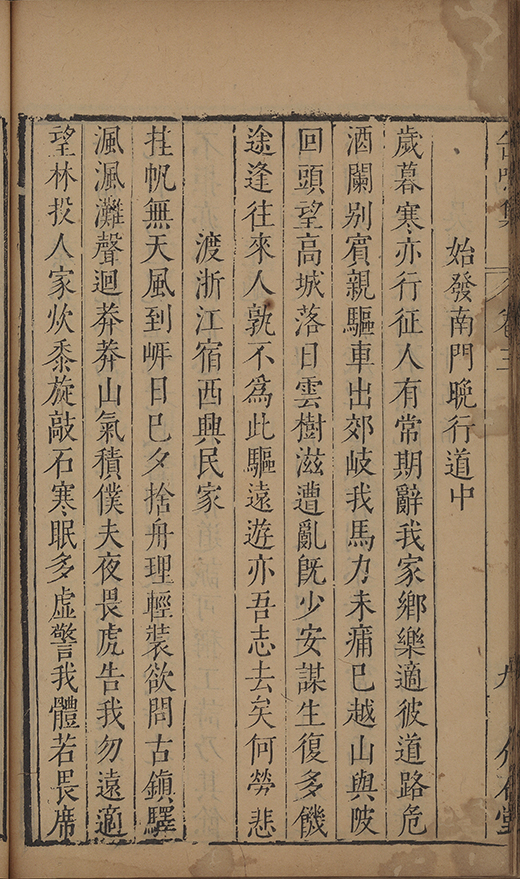 卷三
始發南門晚行道中
歲暮寒亦行征人有常期辭我家鄉樂適彼道路危
酒闌别賓親驅車出郊岐我馬力未痡已越山與陂
回頭望高城落日雲樹滋遭亂旣少安謀生復多饑
途逢往來人孰不爲此驅遠遊亦吾志去矣何勞悲
渡浙江宿西興民家
挂帆無天風到㟁日已夕捨舟理輕裝欲問古鎮驛
渢渢灘聲迴莽莽山氣積僕夫夜畏虎告我勿遠適
望林投人家炊黍旋敲石寒眠多虚警我體若畏席